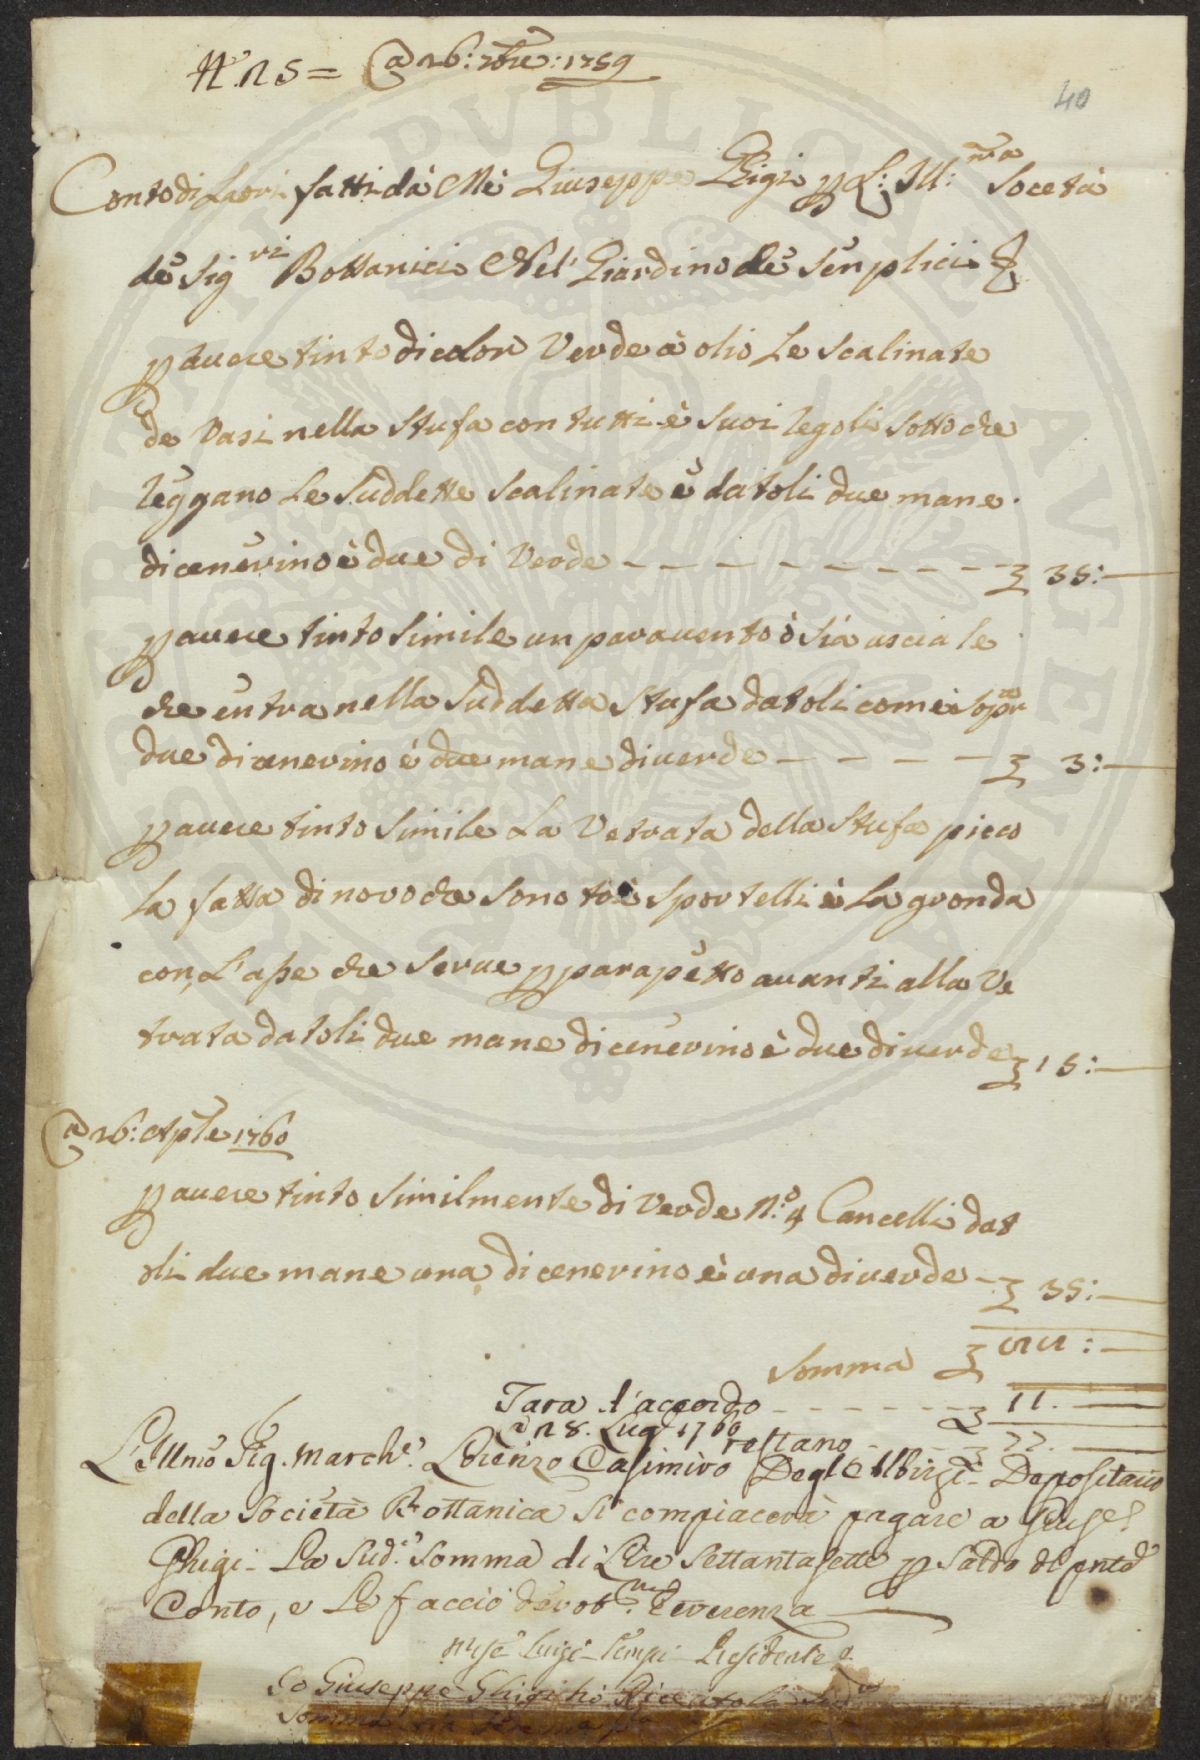 N.º 25 = @ 26: 7bre: 1759
40
Conto di Laori fatti dà Me Giuseppe Ghigi p L: Ill:ma Socetà
de Sig.ri Bottanici Nel' Giardino de Senplici
p auere tinto di color Verde à olio Le Scalinate
de Vasi nella Stufa con tutti è Suoi regoli Sotto che
reggano Le Suddette Scalinate è datoli due mane
di cenerino è due di Verde - - - - - - - - £ 35: —
p auere tinto Simile un parauento ò Sia usciale
che entra nella Suddetta Stufa datoli come Sopra
due di cenerino è due mane di uerde - - - - £ 3: —
p auere tinto Simile La Vetrata della Stufa picco
la fatta di novo che Sono tre Sportelli è La gronda
con L'asse che Serue p parapetto auanti alla Ve
trata datoli due mane di cenerino è due di uerde £ 15: —
@ 26: Aple 1760
p auere tinto Similmente di Verde N.º 4 Cancelli dat
oli due mane una di cenerino è una di uerde - £ 35: —
Somma £ : —
Tara d'accordo - - - - - - £ 11. —
a 28. Lug.o 1760 restano - - - £ 77. —
L'Illmo Sig. March.e Lorenzo Casimiro Degl'Albizi Depositario
della Società Bottanica Si compiacerà pagare a Giuse.e
Ghigi La Sud.a Somma di Lire Settantasette p Saldo di pnte
Conto, e Le faccio devot.ma Reverenza
Luigi Tempi Presidente
Io Giuseppe Ghigi hò Riceuto la
Somma